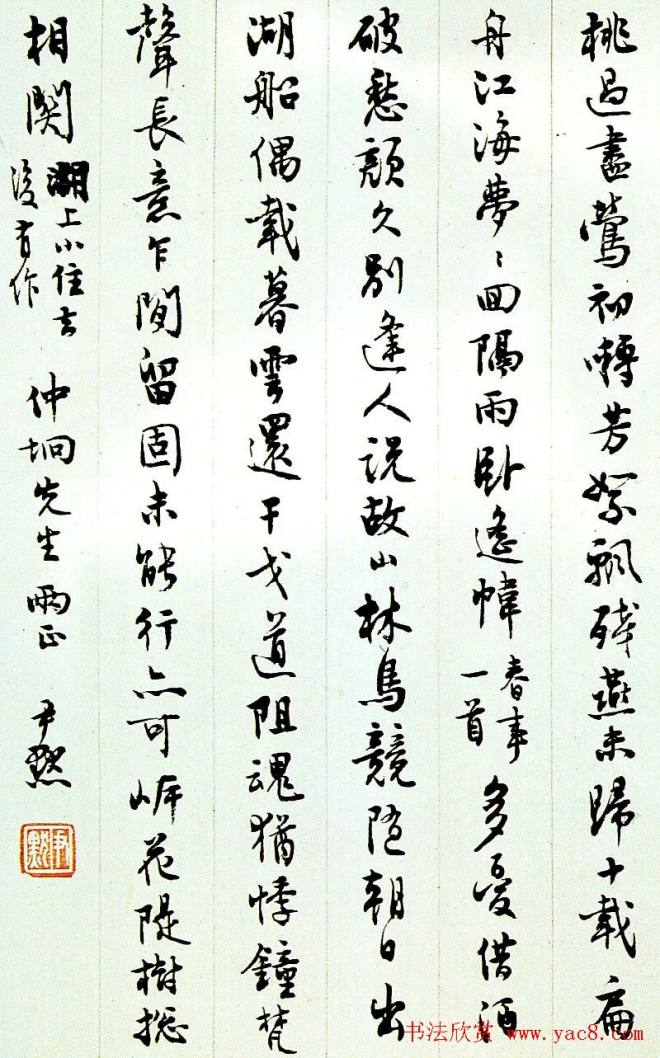 桃過盡鶯初囀芳絮飄殘燕未歸十載扁
舟江海夢〻回隔雨臥遙幃 春事
一首 多憂借酒
破愁顏久別逢人說故山林鳥競隨朝日出
湖船偶載暮雲還干戈道阻魂猶悸鐘梵
聲長意乍閒留固未能行亦可岸花隄樹總
相關 湖上小住去
後有作 仲坰先生兩正 尹默
尹默
书法欣赏 www.yac8.com